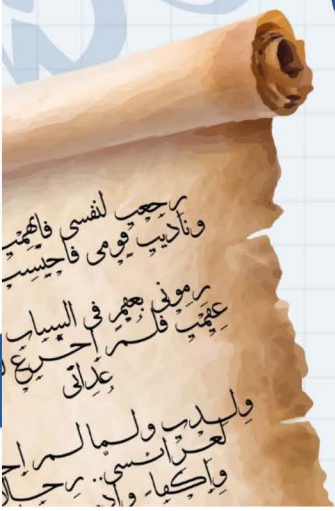 رجعت لنفسي فاتهمت
وناديت قومي فاحتسبت
رموني بعقم في الشباب
عقمت فلم اجزع ل
عداتي
ولدت ولما لم اج
لعرائسي.. رجالا
واكفاء واد